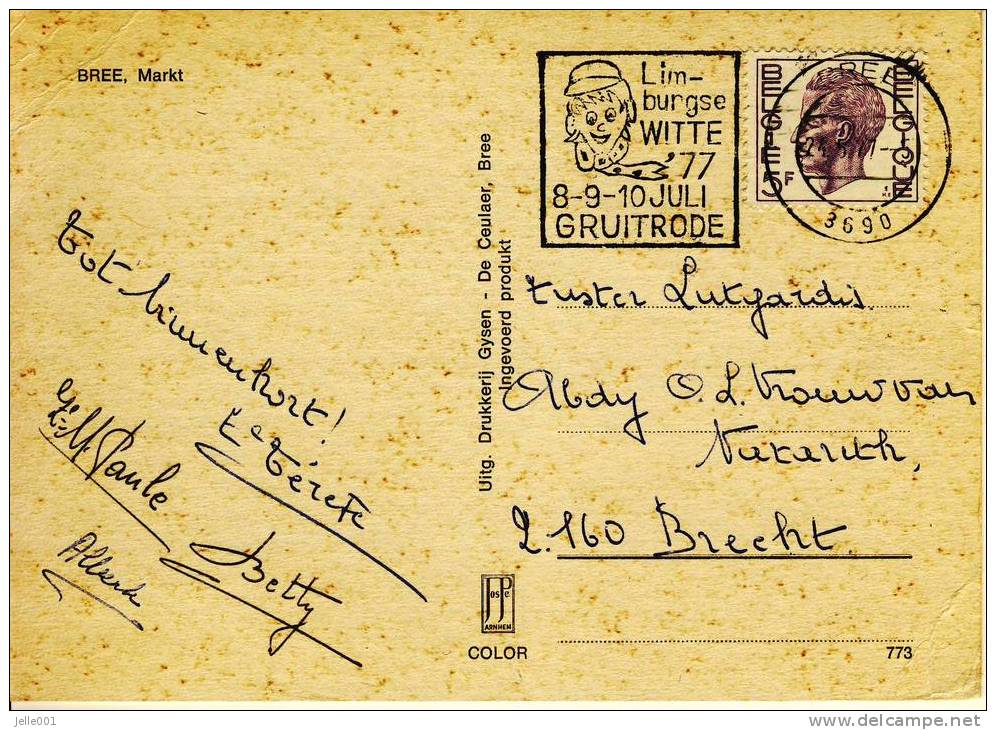 BREE, Markt
Lim-
burgse
WITTE
'77
8-9-10 JULI
GRUITRODE
BELGIE
BELGIQUE
5F
BREE
3690
Tot binnenkort!
Zr Térèse
Zr M. Paule
Betty
Uitg. Drukkerij Gysen - De Ceulaer, Bree
Ingevoerd produkt
Zuster Lutgardis
Abdy O. L. Vrouw van
Nazareth,
2.160 Brecht.
JosPe
ARNHEM
COLOR
773
jelle001
delcampe.net